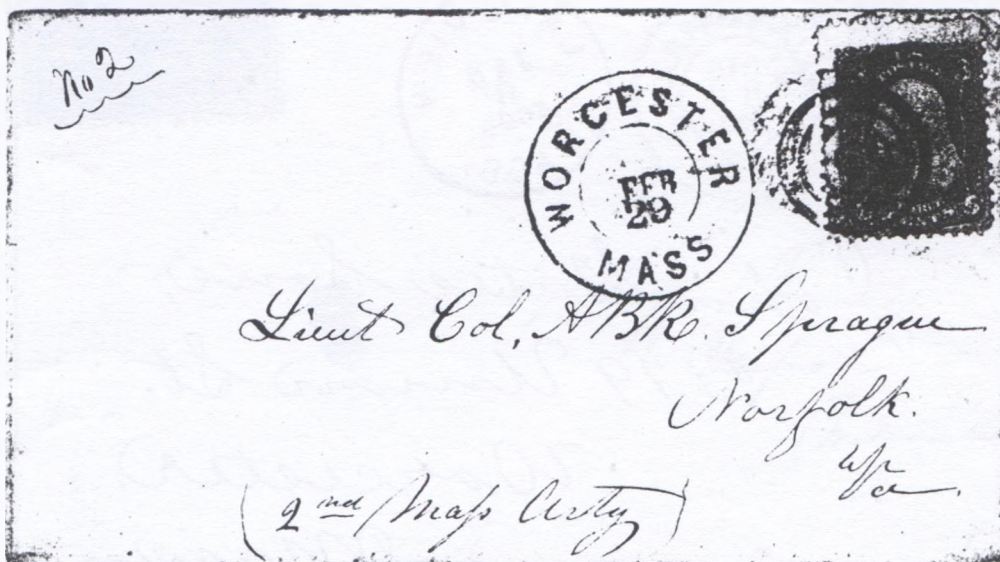 No 2
WORCESTER
FEB
29
MASS
Lieut Col, ABR. Sprague
Norfolk.
Va.
(2nd Mass Arty)